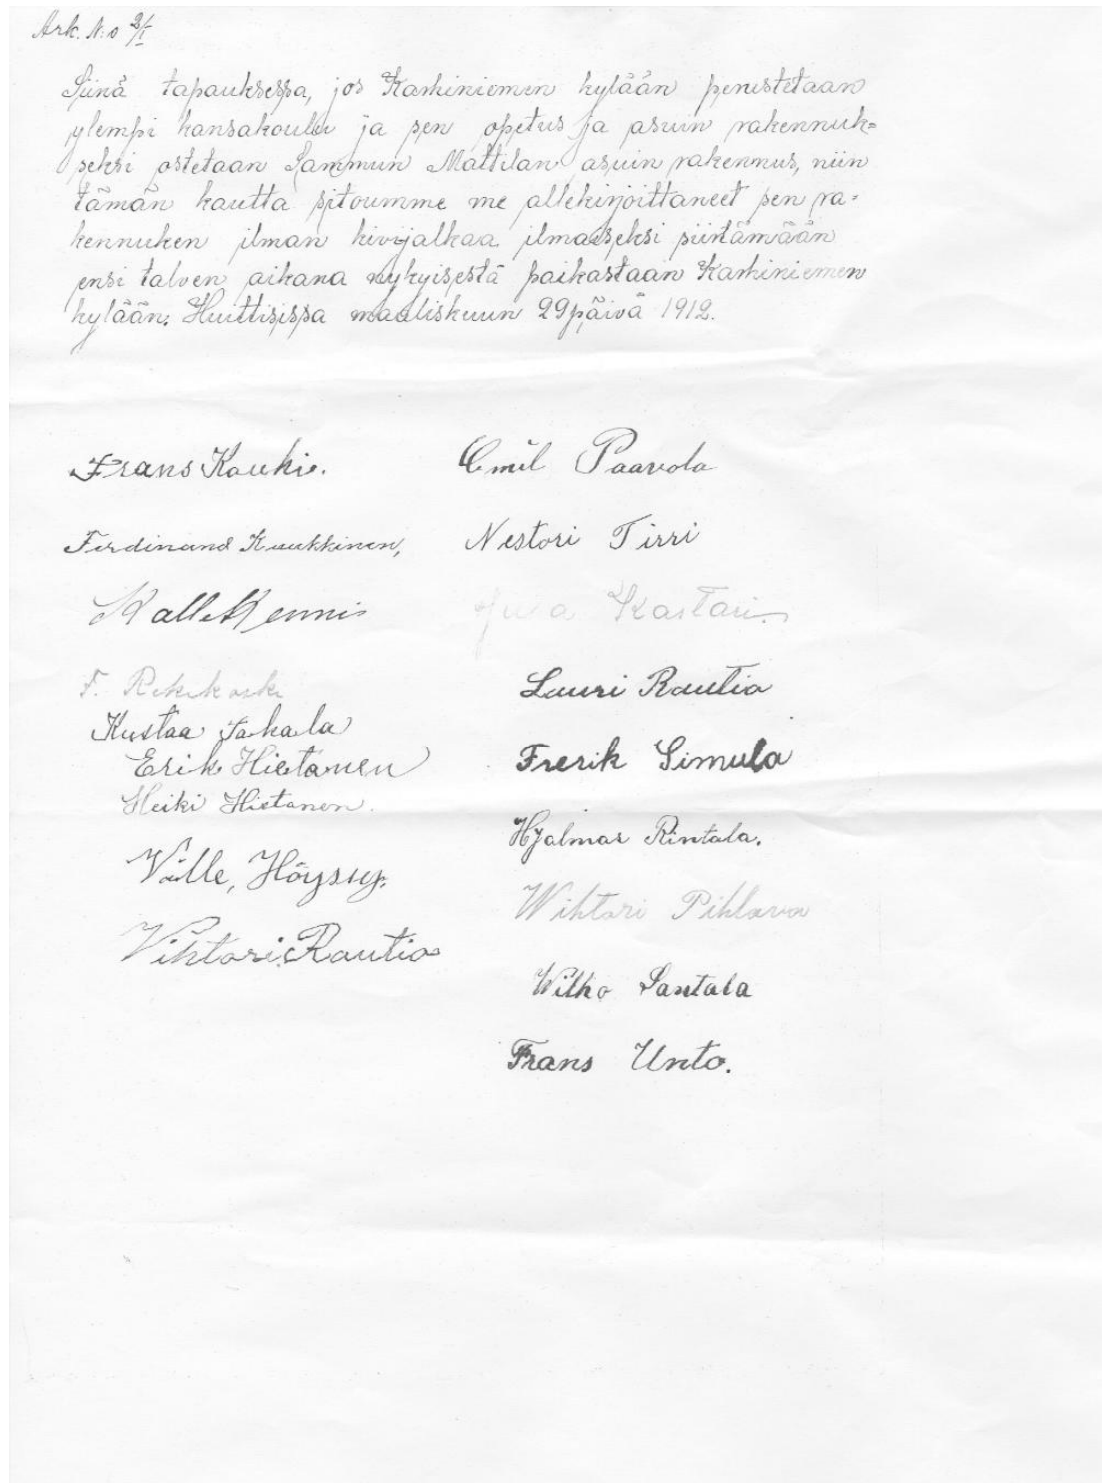 Ark. N:o 2/I
Siinä tapauksessa, jos Karhiniemen kylään perustetaan
ylempi kansakoulu ja sen opetus ja asuin rakennuk=
seksi ostetaan Sammun Mattilan asuin rakennus, niin
tämän kautta sitoumme me allekirjoittaneet sen ra=
kennuken ilman kivijalkaa ilmaiseksi siirtämään
ensi talven aikana nykyisestä paikastaan Karhiniemen
kylään. Huittisissa maaliskuun 29 päivä 1912.
Frans Kouhi.
Ferdinand Kuukkinen,
Kalle Kenni
F. Rekikoski
Kustaa Jakala
Erik Hietanen
Heiki Hietanen.
Ville, Höysny.
Vihtori Rautio
Emil Paavola
Nestori Tirri
Kastari.
Lauri Rautio
Frerik Simula
Hjalmar Rintala.
Wihtari Pihlava
Wilho Santala
Frans Unto.